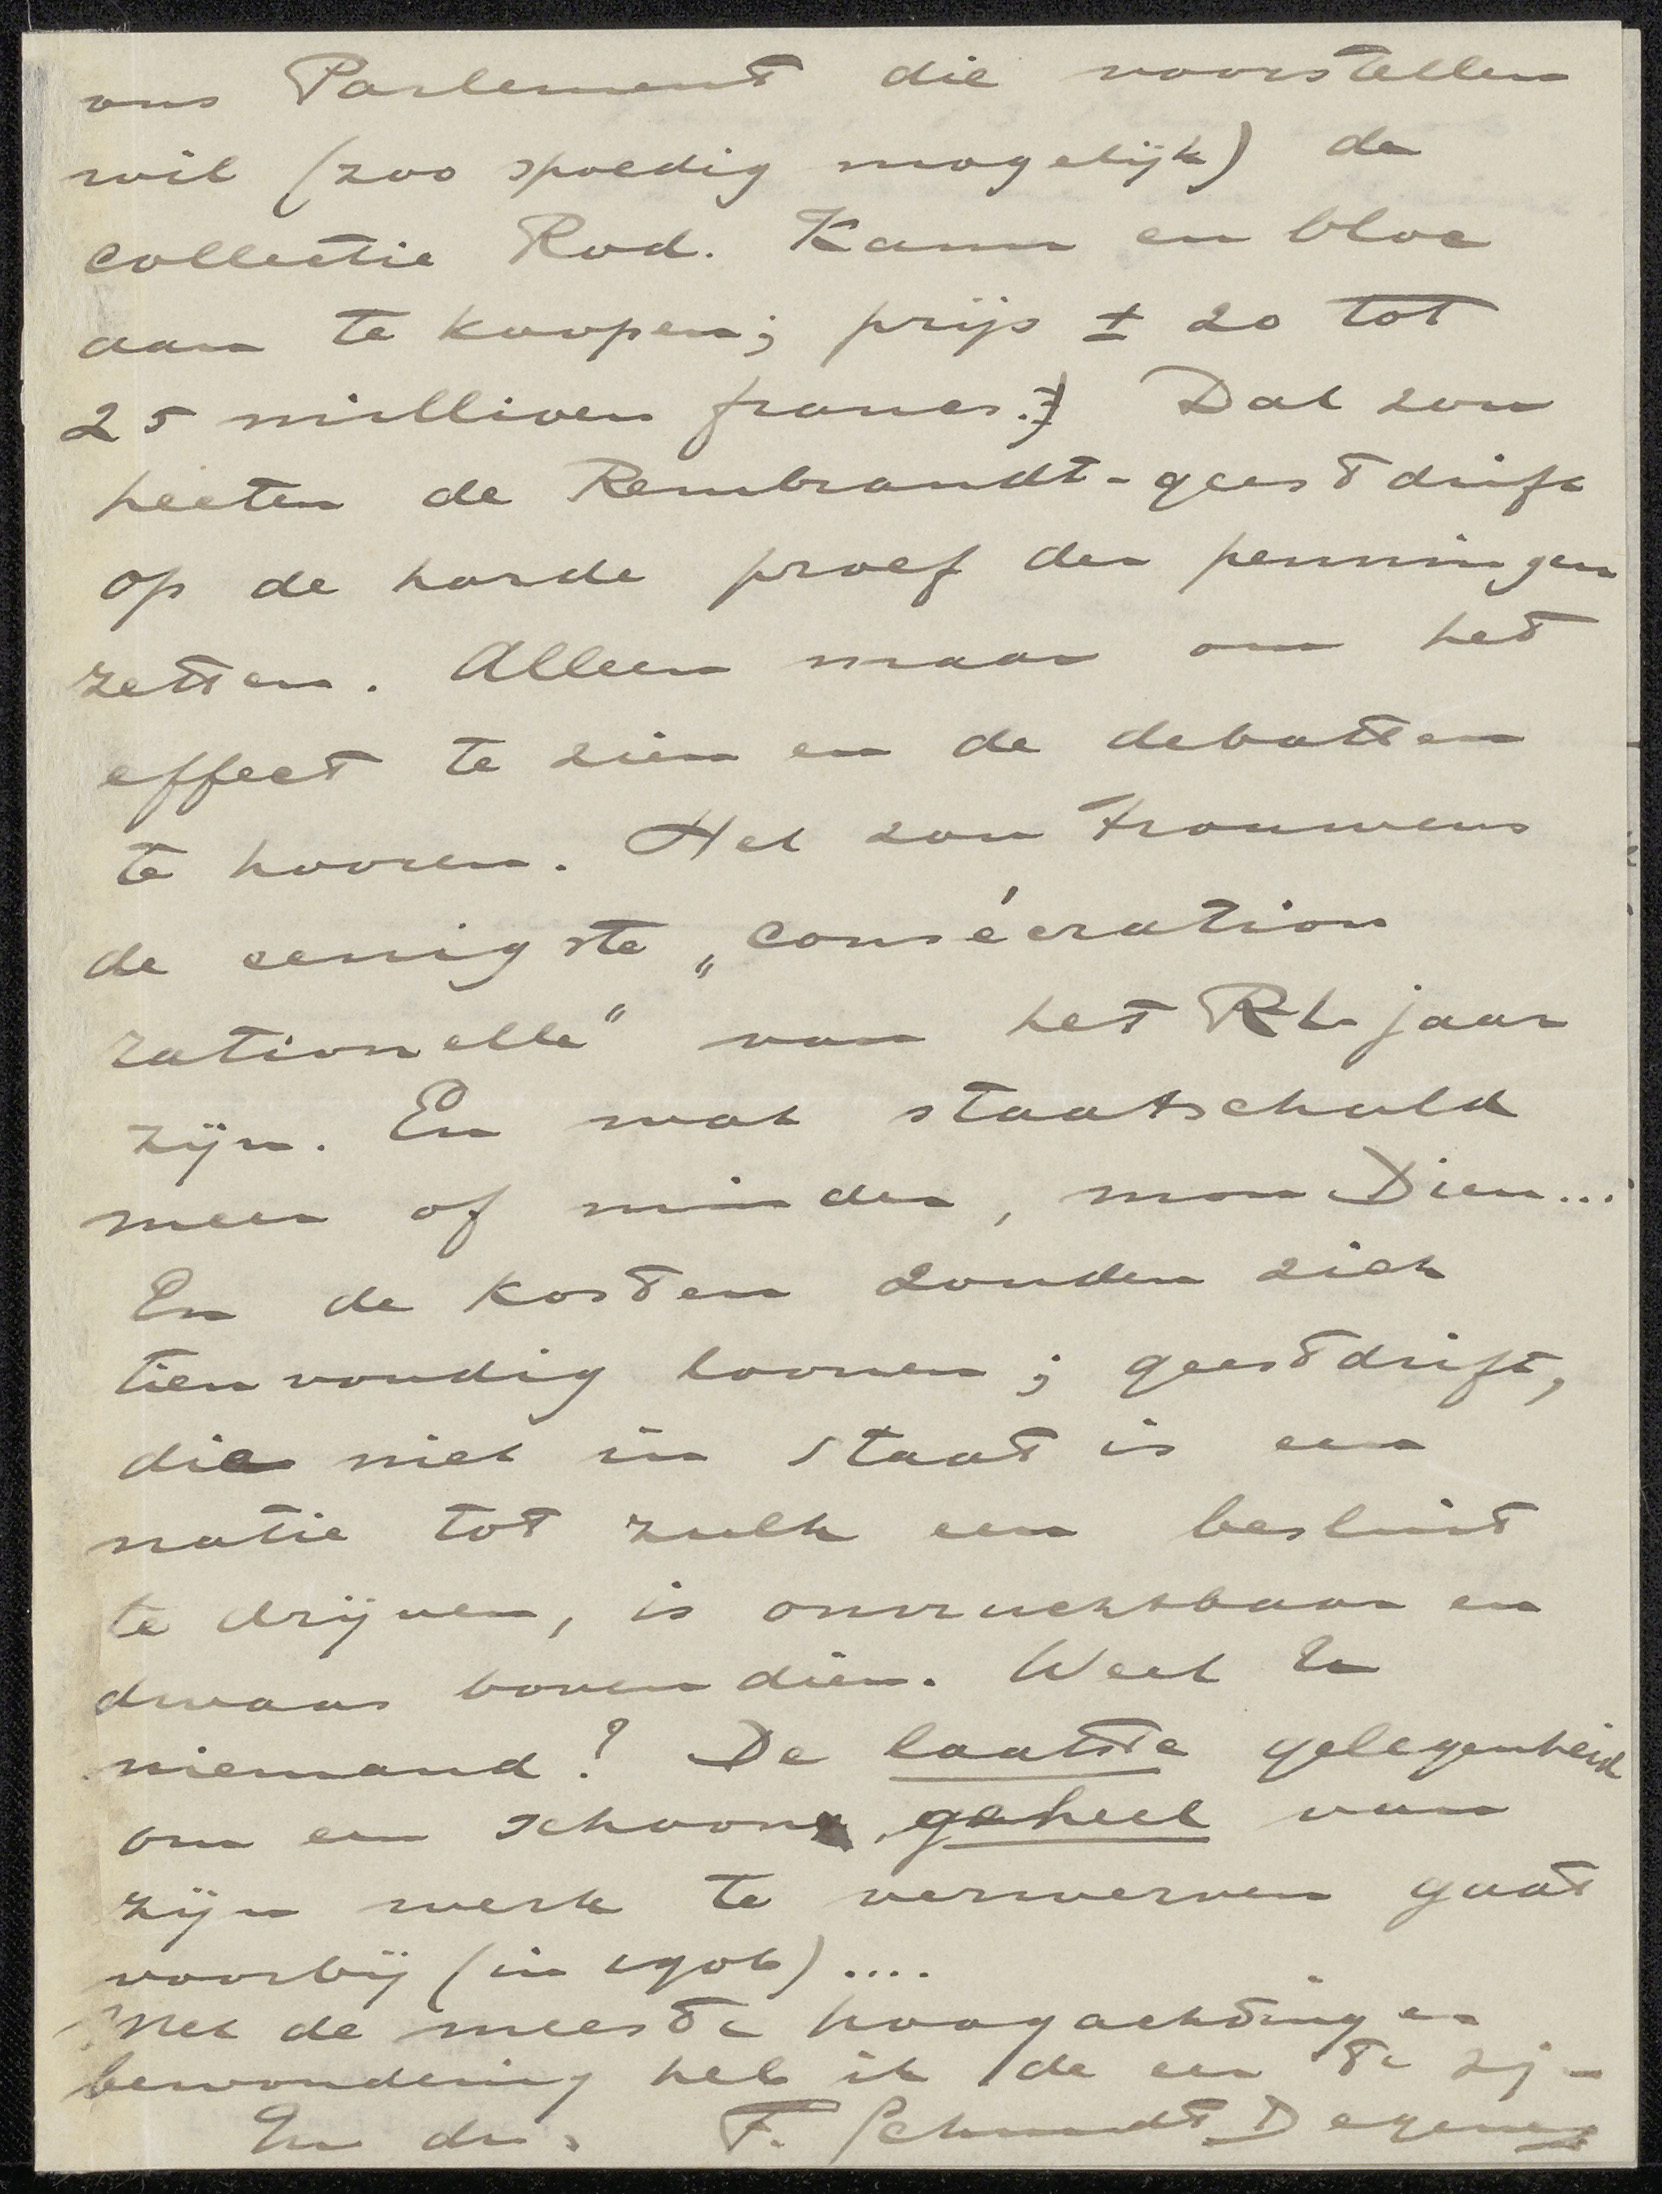 ons Parlement die voorstellen
wil (zoo spoedig mogelijk) de
collectie Rod. Kann en bloc
aan te koopen; prijs ± 20 tot
25 millioen francs. Dat zou
heeten de Rembrandt-geestdrift
op de harde proef der penningen
zetten. Alleen maar om het
effect te zien en de debatten
te hooren. Het zou trouwens
de eenigste „consécration
rationelle" van het Rb jaar
zijn. En wat staatschuld
meer of minder, mon Dieu...
En de kosten zouden zich
tienvoudig loonen; geestdrift,
die niet in staat is een
natie tot zulk een besluit
te drijven, is onvruchtbaar en
dwaas bovendien. Weet U
niemand? De laatste gelegenheid
om een schoon geheel van
zijn werk te verwerven gaat
voorbij (in 1906)....
Met de meeste hoogachting en
bewondering heb ik de eer te zijn
Uw dr. F. Schmidt Degener